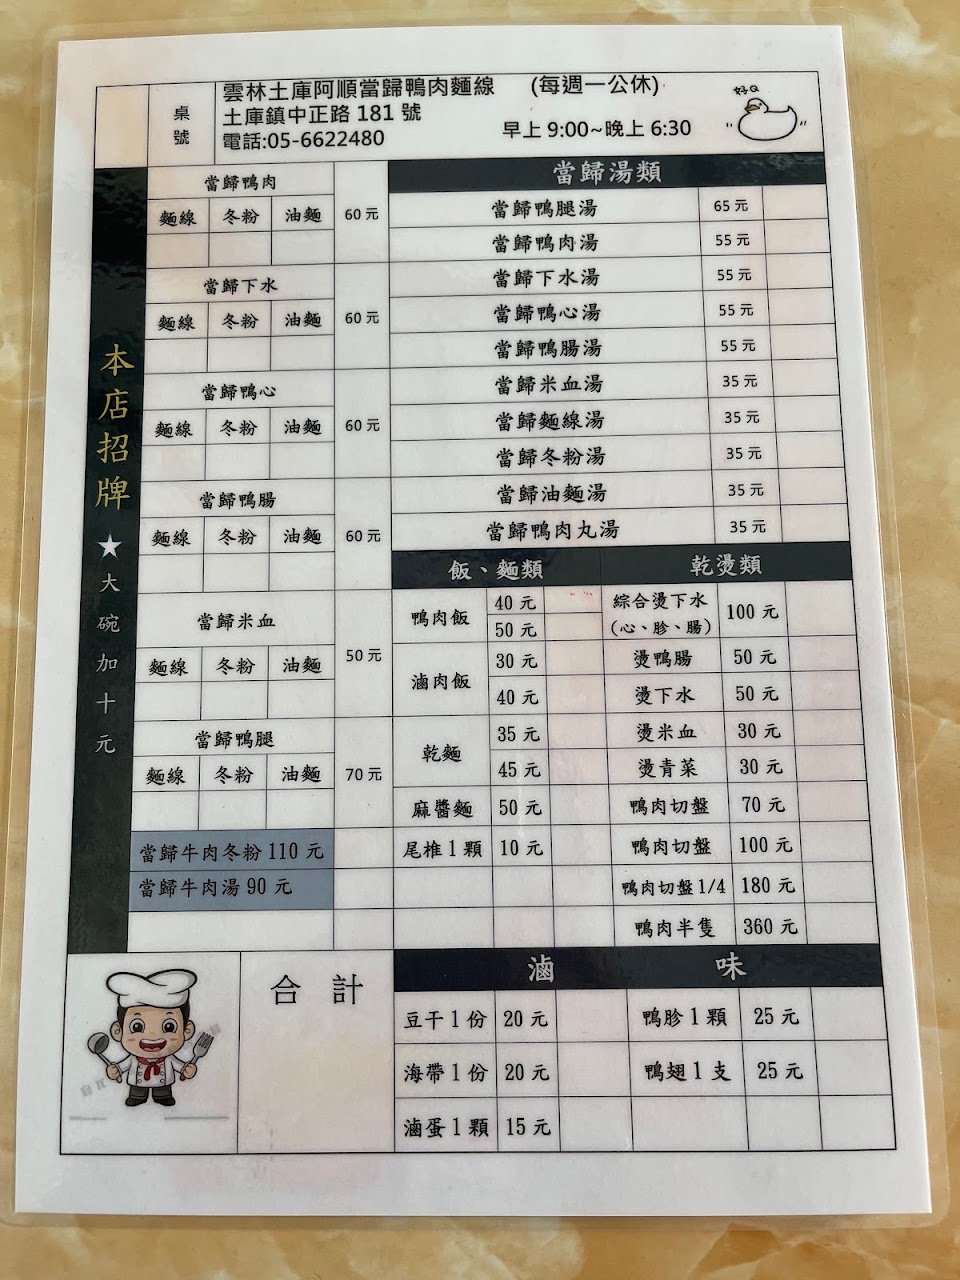 桌號
雲林土庫阿順當歸鴨肉麵線 (每週一公休)
土庫鎮中正路 181 號
電話:05-6622480 早上 9:00~晚上 6:30
好Q
本店招牌★大碗加十元
當歸鴨肉 60 元
麵線 冬粉 油麵
當歸下水 60 元
麵線 冬粉 油麵
當歸鴨心 60 元
麵線 冬粉 油麵
當歸鴨腸 60 元
麵線 冬粉 油麵
當歸米血 50 元
麵線 冬粉 油麵
當歸鴨腿 70 元
麵線 冬粉 油麵
當歸牛肉冬粉 110 元
當歸牛肉湯 90 元
當歸湯類
當歸鴨腿湯 65 元
當歸鴨肉湯 55 元
當歸下水湯 55 元
當歸鴨心湯 55 元
當歸鴨腸湯 55 元
當歸米血湯 35 元
當歸麵線湯 35 元
當歸冬粉湯 35 元
當歸油麵湯 35 元
當歸鴨肉丸湯 35 元
飯、麵類
鴨肉飯 40 元
50 元
滷肉飯 30 元
40 元
乾麵 35 元
45 元
麻醬麵 50 元
尾椎 1 顆 10 元
乾燙類
綜合燙下水
(心、胗、腸) 100 元
燙鴨腸 50 元
燙下水 50 元
燙米血 30 元
燙青菜 30 元
鴨肉切盤 70 元
鴨肉切盤 100 元
鴨肉切盤 1/4 180 元
鴨肉半隻 360 元
合 計
滷 味
豆干 1 份 20 元 鴨胗 1 顆 25 元
海帶 1 份 20 元 鴨翅 1 支 25 元
滷蛋 1 顆 15 元